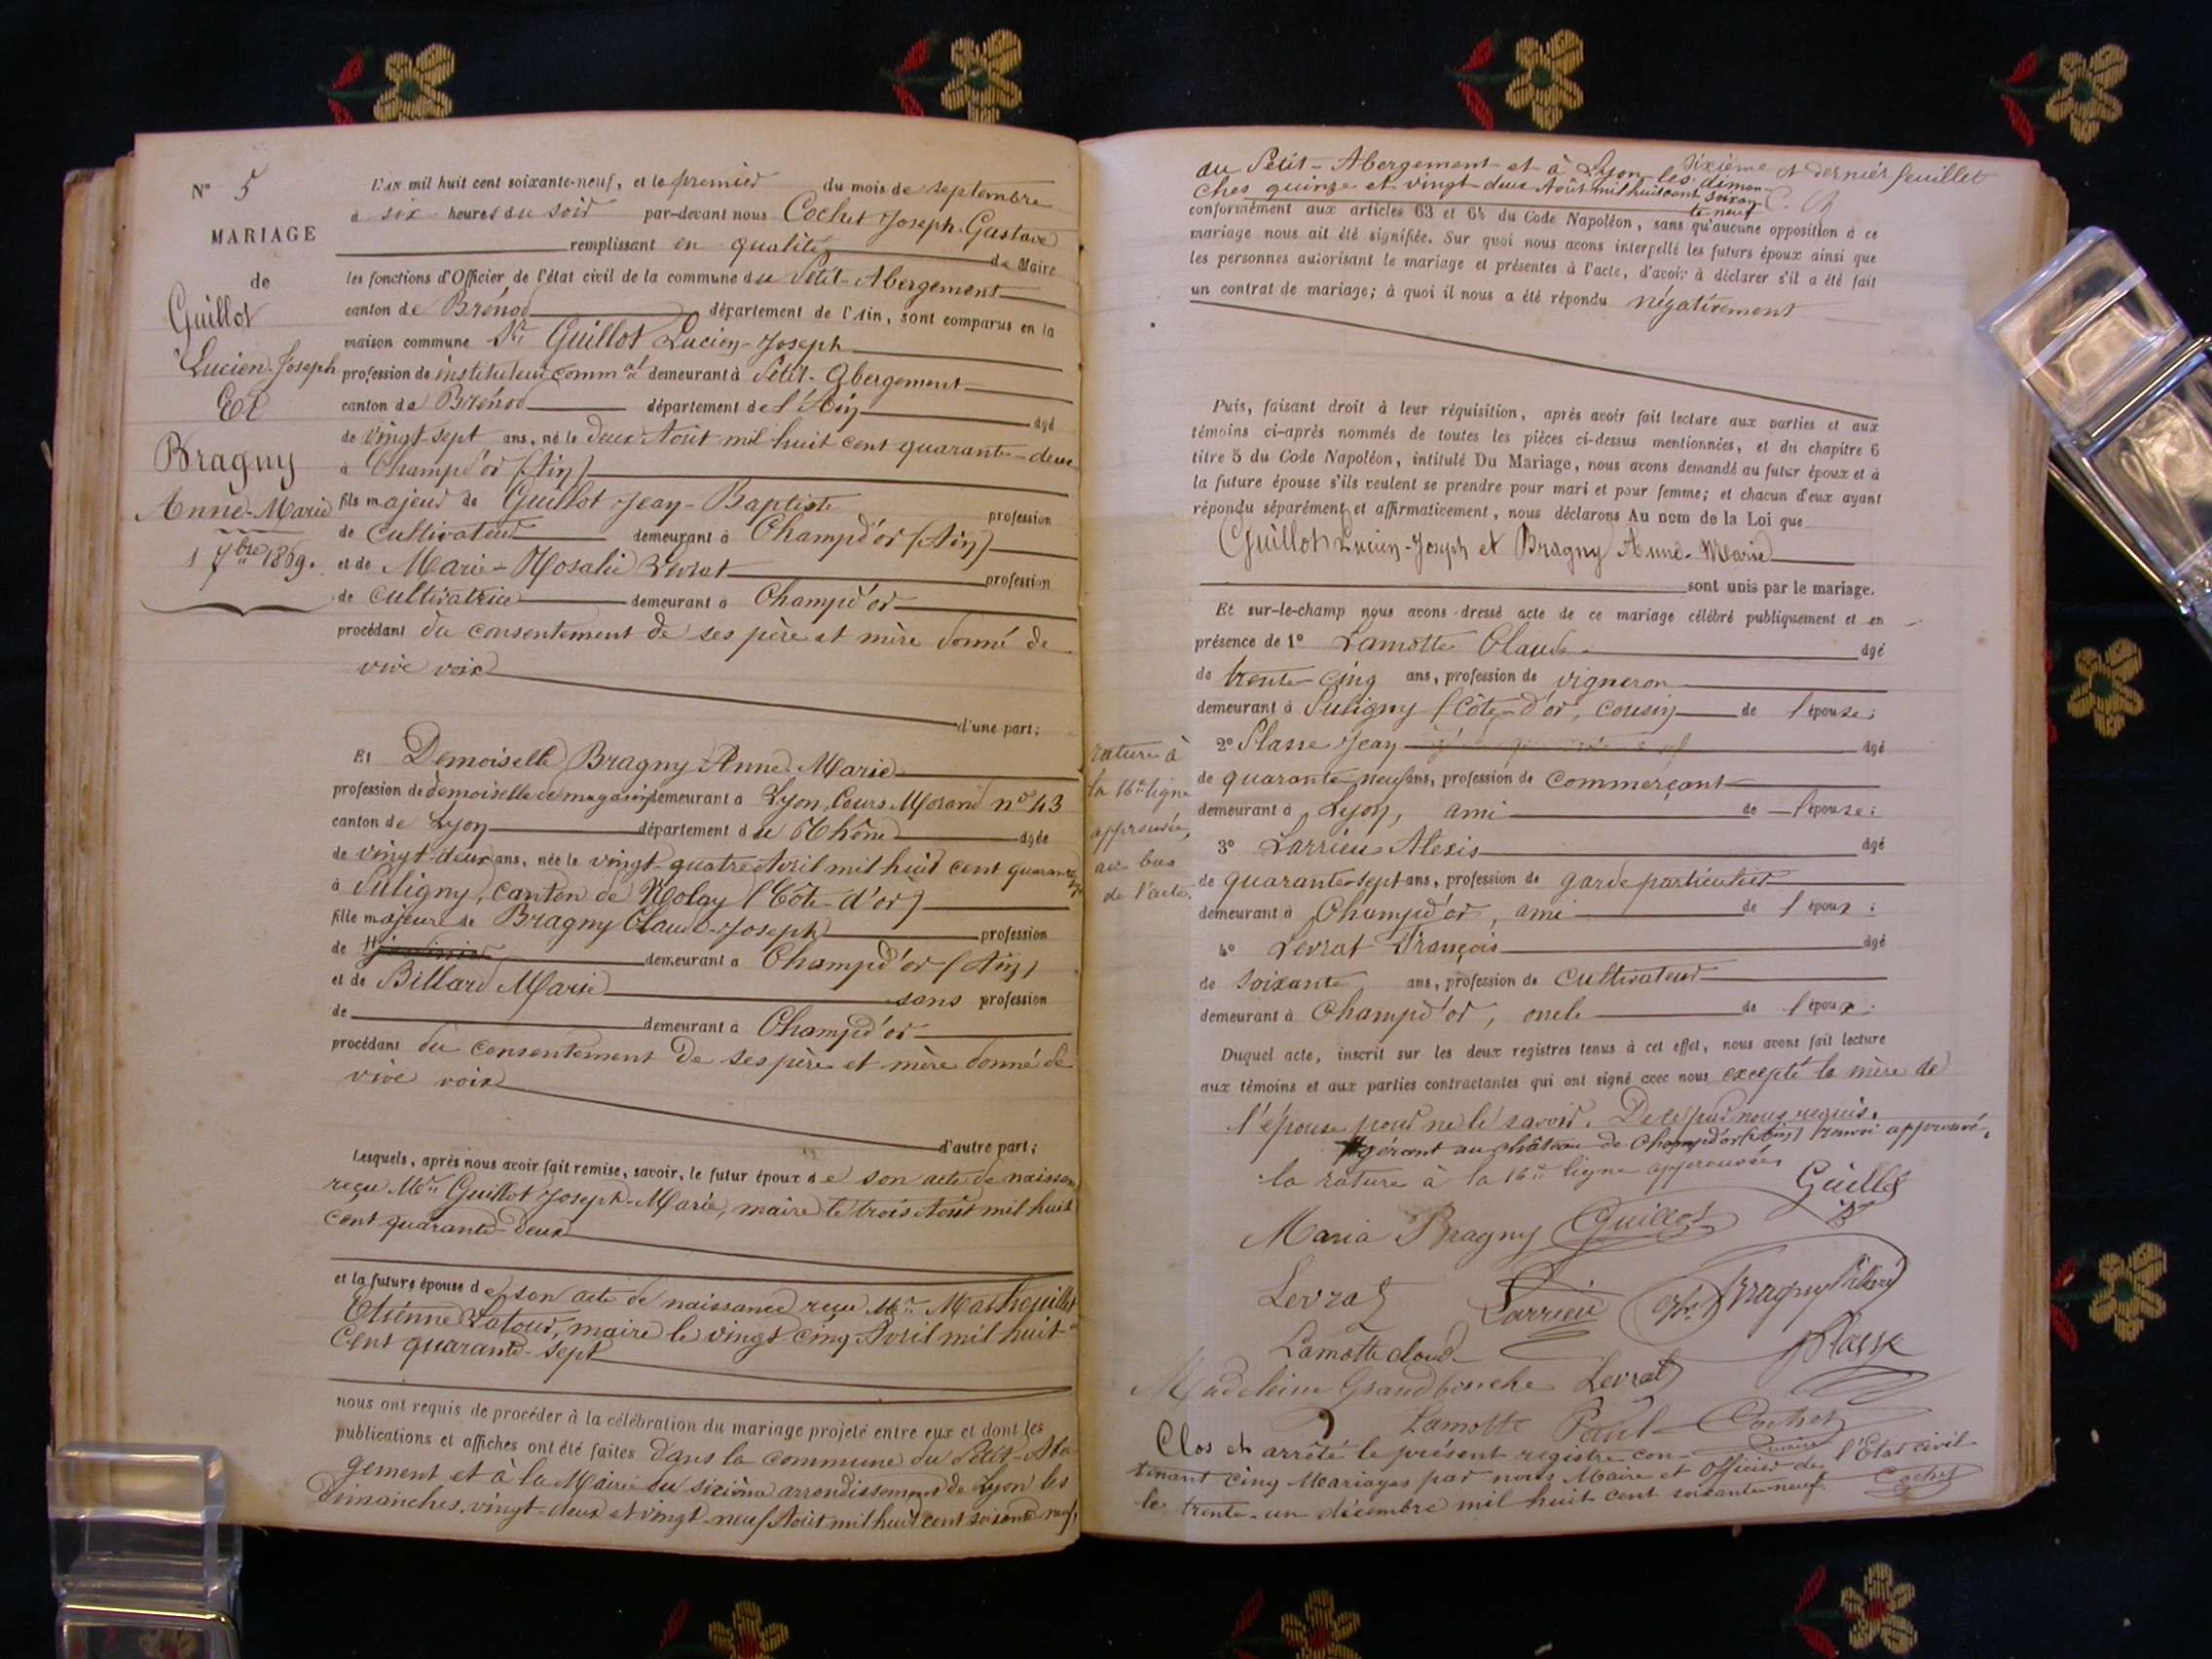 N° 5
MARIAGE
de
Guillot
Lucien-Joseph
Et
Bragny
Anne-Marie
1 7bre 1869.
L'AN mil huit cent soixante-neuf, et le premier du mois de septembre
à six heures du soir par-devant nous Cochet Joseph-Gustave
remplissant en qualité de Maire
les fonctions d'Officier de l'état civil de la commune du Petit-Abergement
canton de Brénod département de l'Ain, sont comparus en la
maison commune Sr Guillot Lucien-Joseph
profession de instituteur commal demeurant à Petit-Abergement
canton de Brénod département de l'Ain âgé
de vingt-sept ans, né le deux Août mil huit cent quarante-deux
à Champd'or (Ain)
fils majeur de Guillot Jean-Baptiste profession
de cultivateur demeurant à Champd'or (Ain)
et de Marie-Rosalie Levrat profession
de cultivatrice demeurant à Champd'or
procédant du consentement de ses père et mère donné de
vive voix
d'une part;
Et Demoiselle Bragny Anne-Marie
profession de demoiselle de magasin demeurant à Lyon, Cours Morand n° 43
canton de Lyon département du Rhône âgée
de vingt-deux ans, née le vingt-quatre Avril mil huit cent quarante sept
à Puligny, canton de Nolay (Côte-d'or)
fille majeure de Bragny Claude-Joseph profession
de demeurant à Champd'or (Ain)
et de Billard Marie sans profession
de demeurant à Champd'or
procédant du consentement de ses père et mère donné de
vive voix
d'autre part;
Lesquels, après nous avoir fait remise, savoir, le futur époux de son acte de naissance
reçu Mr Guillot Joseph-Marie, maire le trois Août mil huit
cent quarante-deux
et la future épouse de son acte de naissance reçu Mr Mathouillet
Etienne Latour, maire le vingt-cinq Avril mil huit
cent quarante-sept
nous ont requis de procéder à la célébration du mariage projeté entre eux et dont les
publications et affiches ont été faites dans la commune du Petit-Aber
gement et à la Mairie du sixième arrondissement de Lyon les
dimanches, vingt-deux et vingt-neuf Août mil huit cent soixante neuf,
Sixième et dernier feuillet
au Petit-Abergement et à Lyon les diman-
ches quinze et vingt-deux Août mil huit cent soixan-
te-neuf
conformément aux articles 63 et 64 du Code Napoléon, sans qu'aucune opposition à ce
mariage nous ait été signifiée. Sur quoi nous avons interpellé les futurs époux ainsi que
les personnes autorisant le mariage et présentes à l'acte, d'avoir à déclarer s'il a été fait
un contrat de mariage; à quoi il nous a été répondu négativement
Puis, faisant droit à leur réquisition, après avoir fait lecture aux parties et aux
témoins ci-après nommés de toutes les pièces ci-dessus mentionnées, et du chapitre 6
titre 5 du Code Napoléon, intitulé Du Mariage, nous avons demandé au futur époux et à
la future épouse s'ils veulent se prendre pour mari et pour femme; et chacun d'eux ayant
répondu séparément et affirmativement, nous déclarons Au nom de la Loi que
Guillot Lucien-Joseph et Bragny Anne-Marie
sont unis par le mariage.
Et sur-le-champ nous avons dressé acte de ce mariage célébré publiquement et en
présence de 1° Lamotte Claude âgé
de trente-cinq ans, profession de vigneron
demeurant à Puligny (Côte-d'or, cousin de l'épouse;
2° Plasse Jean âgé
de quarante-neuf ans, profession de commerçant
demeurant à Lyon, ami de l'épouse;
3° Larrieu Alexis âgé
de quarante-sept ans, profession de garde particulier
demeurant à Champd'or, ami de l'époux;
4° Levrat François âgé
de soixante ans, profession de cultivateur
demeurant à Champd'or, oncle de l'époux.
rature à
la 16e ligne
approuvée,
au bas
de l'acte.
Duquel acte, inscrit sur les deux registres tenus à cet effet, nous avons fait lecture
aux témoins et aux parties contractantes qui ont signé avec nous excepté la mère de
l'épouse pour ne le savoir. De ce par nous requis.
gérant au château de Champd'or (Ain) renvoi approuvé,
la rature à la 16e ligne approuvée
Guillot
Maria Bragny Guillot
Levrat Larrieu Bragny
Lamotte claude Plasse
Madeleine Grandbouche Levrat
Lamotte Paul Cochet
maire
Clos et arrêté le présent registre con-
tenant cinq Mariages par nous Maire et Officier de l'Etat civil
le trente-un décembre mil huit cent soixante-neuf. Cochet